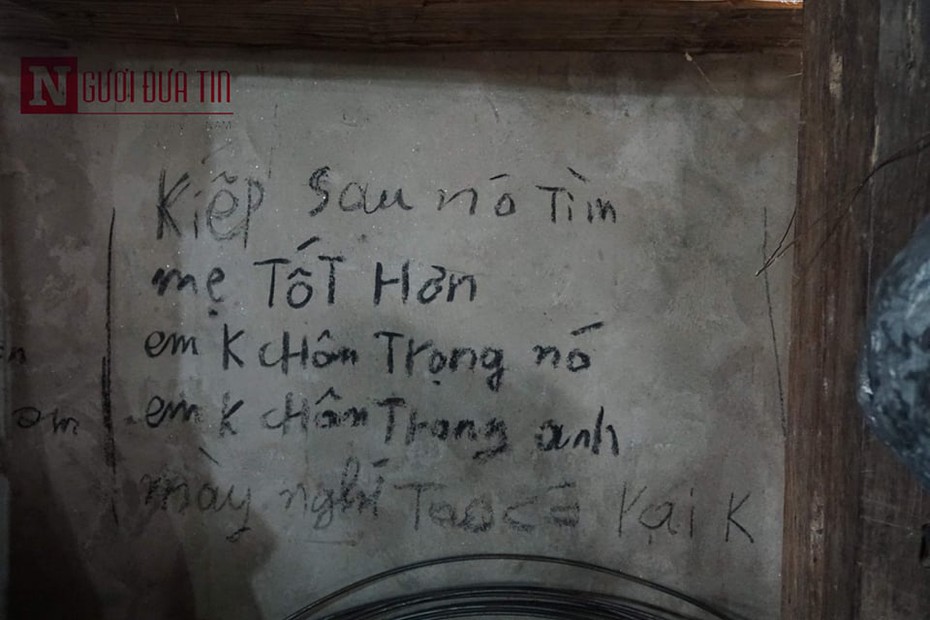 NGƯỜI ĐƯA TIN
Kiếp Sau nó Tìm
mẹ TốT Hơn
em K cHân Trọng nó
em K cHân Trọng anh
mày nghĩ Tao có Vại K
om